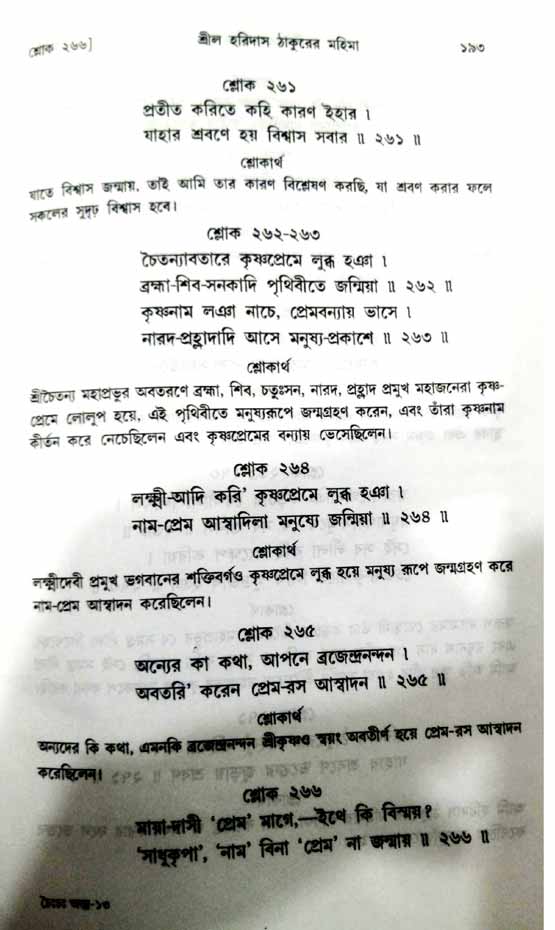 শ্লোক ২৬৬]
শ্রীল হরিদাস ঠাকুরের মহিমা
১৯৩
শ্লোক ২৬১
প্রতীত করিতে কহি কারণ ইহার ।
যাহার শ্রবণে হয় বিশ্বাস সবার ॥ ২৬১ ॥
শ্লোকার্থ
যাতে বিশ্বাস জন্মায়, তাই আমি তার কারণ বিশ্লেষণ করছি, যা শ্রবণ করার ফলে
সকলের সুদৃঢ় বিশ্বাস হবে।
শ্লোক ২৬২-২৬৩
চৈতন্যাবতারে কৃষ্ণপ্রেমে লুব্ধ হঞা ।
ব্রহ্মা-শিব-সনকাদি পৃথিবীতে জন্মিয়া ॥ ২৬২ ॥
কৃষ্ণনাম লঞা নাচে, প্রেমবন্যায় ভাসে ।
নারদ-প্রহ্লাদাদি আসে মনুষ্য-প্রকাশে ॥ ২৬৩ ॥
শ্লোকার্থ
শ্রীচৈতন্য মহাপ্রভুর অবতরণে ব্রহ্মা, শিব, চতুঃসন, নারদ, প্রহ্লাদ প্রমুখ মহাজনেরা কৃষ্ণ-
প্রেমে লোলুপ হয়ে, এই পৃথিবীতে মনুষ্যরূপে জন্মগ্রহণ করেন, এবং তাঁরা কৃষ্ণনাম
কীর্তন করে নেচেছিলেন এবং কৃষ্ণপ্রেমের বন্যায় ভেসেছিলেন।
শ্লোক ২৬৪
লক্ষ্মী-আদি করি' কৃষ্ণপ্রেমে লুব্ধ হঞা ।
নাম-প্রেম আস্বাদিলা মনুষ্যে জন্মিয়া ॥ ২৬৪ ॥
শ্লোকার্থ
লক্ষ্মীদেবী প্রমুখ ভগবানের শক্তিবর্গও কৃষ্ণপ্রেমে লুব্ধ হয়ে মনুষ্য রূপে জন্মগ্রহণ করে
নাম-প্রেম আস্বাদন করেছিলেন।
শ্লোক ২৬৫
অন্যের কা কথা, আপনে ব্রজেন্দ্রনন্দন ।
অবতরি' করেন প্রেম-রস আস্বাদন ॥ ২৬৫ ॥
শ্লোকার্থ
অন্যদের কি কথা, এমনকি ব্রজেন্দ্রনন্দন শ্রীকৃষ্ণও স্বয়ং অবতীর্ণ হয়ে প্রেম-রস আস্বাদন
করেছিলেন।
শ্লোক ২৬৬
মায়া-দাসী 'প্রেম' মাগে,—ইথে কি বিস্ময়?
'সাধুকৃপা', 'নাম' বিনা 'প্রেম' না জন্মায় ॥ ২৬৬ ॥
চৈঃচঃ অন্ত্য-১৩